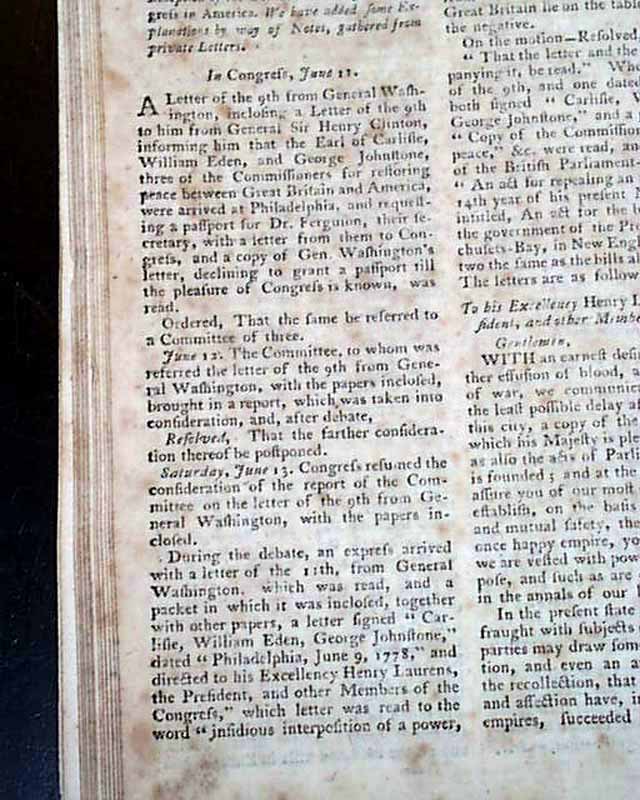 gress in America. We have added some Ex-
planations by way of Notes, gathered from
private Letters.
In Congress, June 11.
A Letter of the 9th from General Wash-
ington, inclosing a Letter of the 9th
to him from General Sir Henry Clinton,
informing him that the Earl of Carlisle,
William Eden, and George Johnstone,
three of the Commissioners for restoring
peace between Great Britain and America,
were arrived at Philadelphia, and request-
ing a passport for Dr. Ferguson, their se-
cretary, with a letter from them to Con-
gress, and a copy of Gen. Washington's
letter, declining to grant a passport till
the pleasure of Congress is known, was
read.
Ordered, That the same be referred to
a Committee of three.
June 12. The Committee, to whom was
referred the letter of the 9th from Gene-
ral Washington, with the papers inclosed,
brought in a report, which was taken into
consideration, and, after debate,
Resolved, That the farther considera-
tion thereof be postponed.
Saturday, June 13. Congress resumed the
consideration of the report of the Com-
mittee on the letter of the 9th from Ge-
neral Washington, with the papers in-
closed.
During the debate, an express arrived
with a letter of the 11th, from General
Washington, which was read, and a
packet in which it was inclosed, together
with other papers, a letter signed "Car-
lisle, William Eden, George Johnstone,"
dated "Philadelphia, June 9, 1778," and
directed to his Excellency Henry Laurens,
the President, and other Members of the
Congress," which letter was read to the
word "insidious interposition of a power,
Great Britain lie on the table
the negative.
On the motion—Resolved,
"That the letter and the
panying it, be read." Whe
of the 9th, and one dated
both signed "Carlisle, W
George Johnstone," and a
"Copy of the Commission
peace," &c. were read, and
of the British Parliament
"An act for repealing an
14th year of his present M
intitled, An act for the b
the government of the Pro
chusets-Bay, in New Engl
two the same as the bills al
The letters are as follow
To his Excellency Henry L
sident, and other Membe
Gentlemen,
WITH an earnest desi
ther effusion of blood, a
of war, we communi
the least possible delay af
this city, a copy of the
which his Majesty is ple
as also the acts of Parli
is founded; and at the
assure you of our most
establish, on the basis
and mutual safety, the
once happy empire, yo
we are vested with pow
pose, and such as are
in the annals of our
In the present state
fraught with subjects
parties may draw som
tion, and even an a
the recollection, that
and affection have, i
empires, succeeded